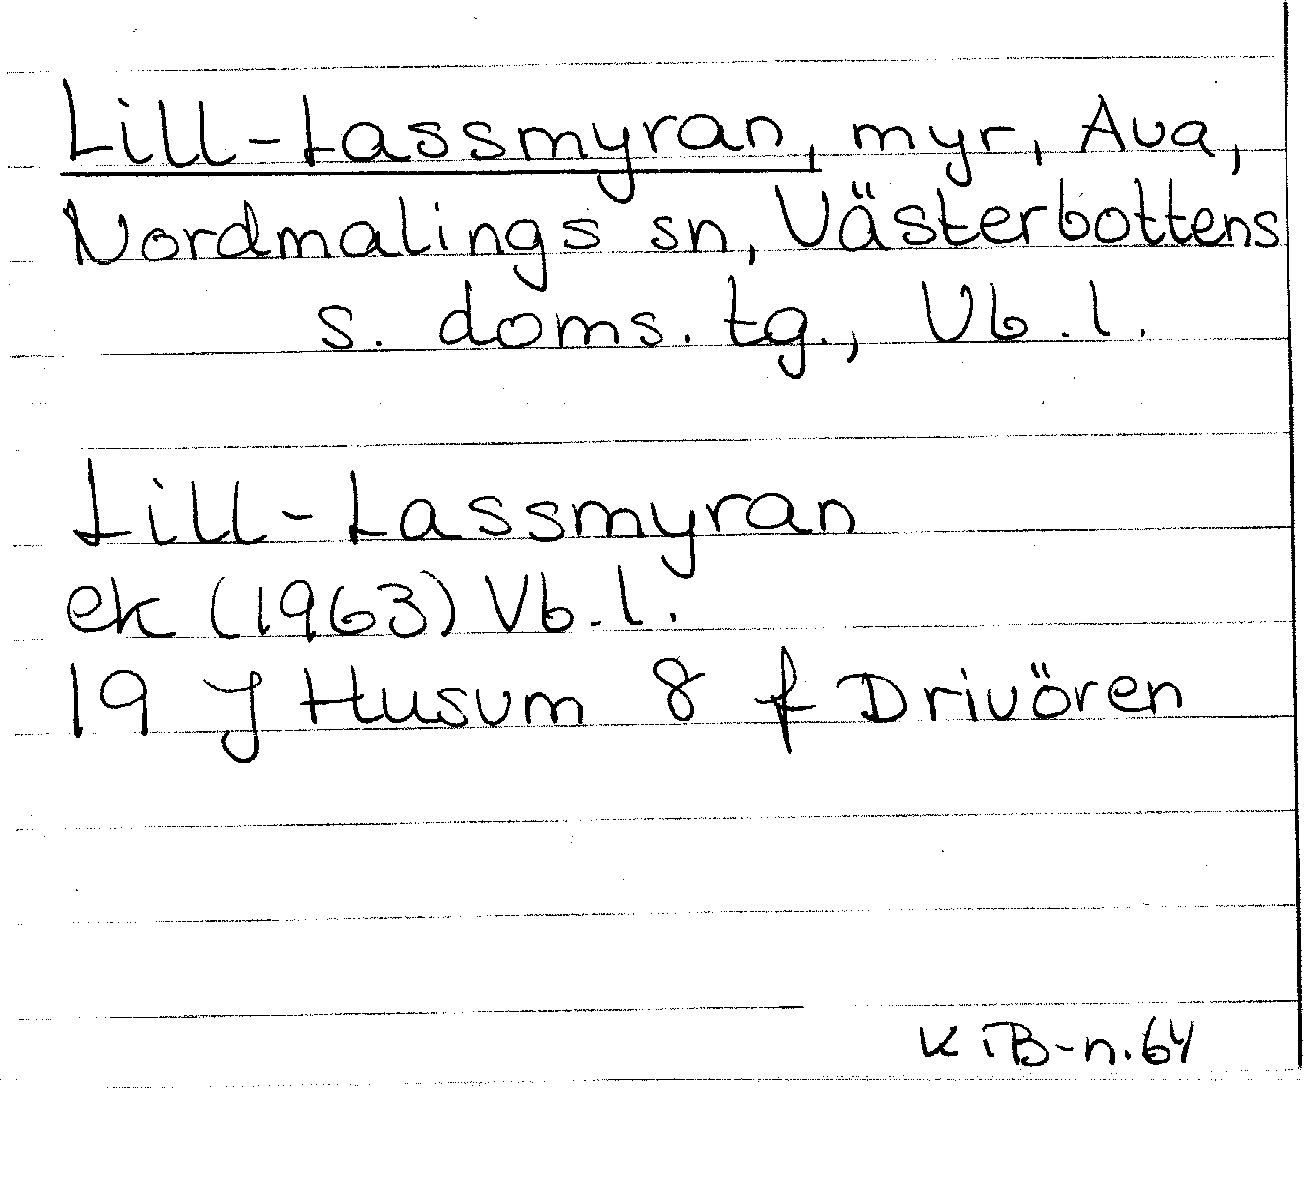 Lill-Lassmyran, myr, Ava,
Nordmalings sn, Västerbottens
s. doms. tg., Vb. l.
Lill-Lassmyran
ek (1963) Vb. l.
19 J Husum 8 f Drivören
K iB-n. 64